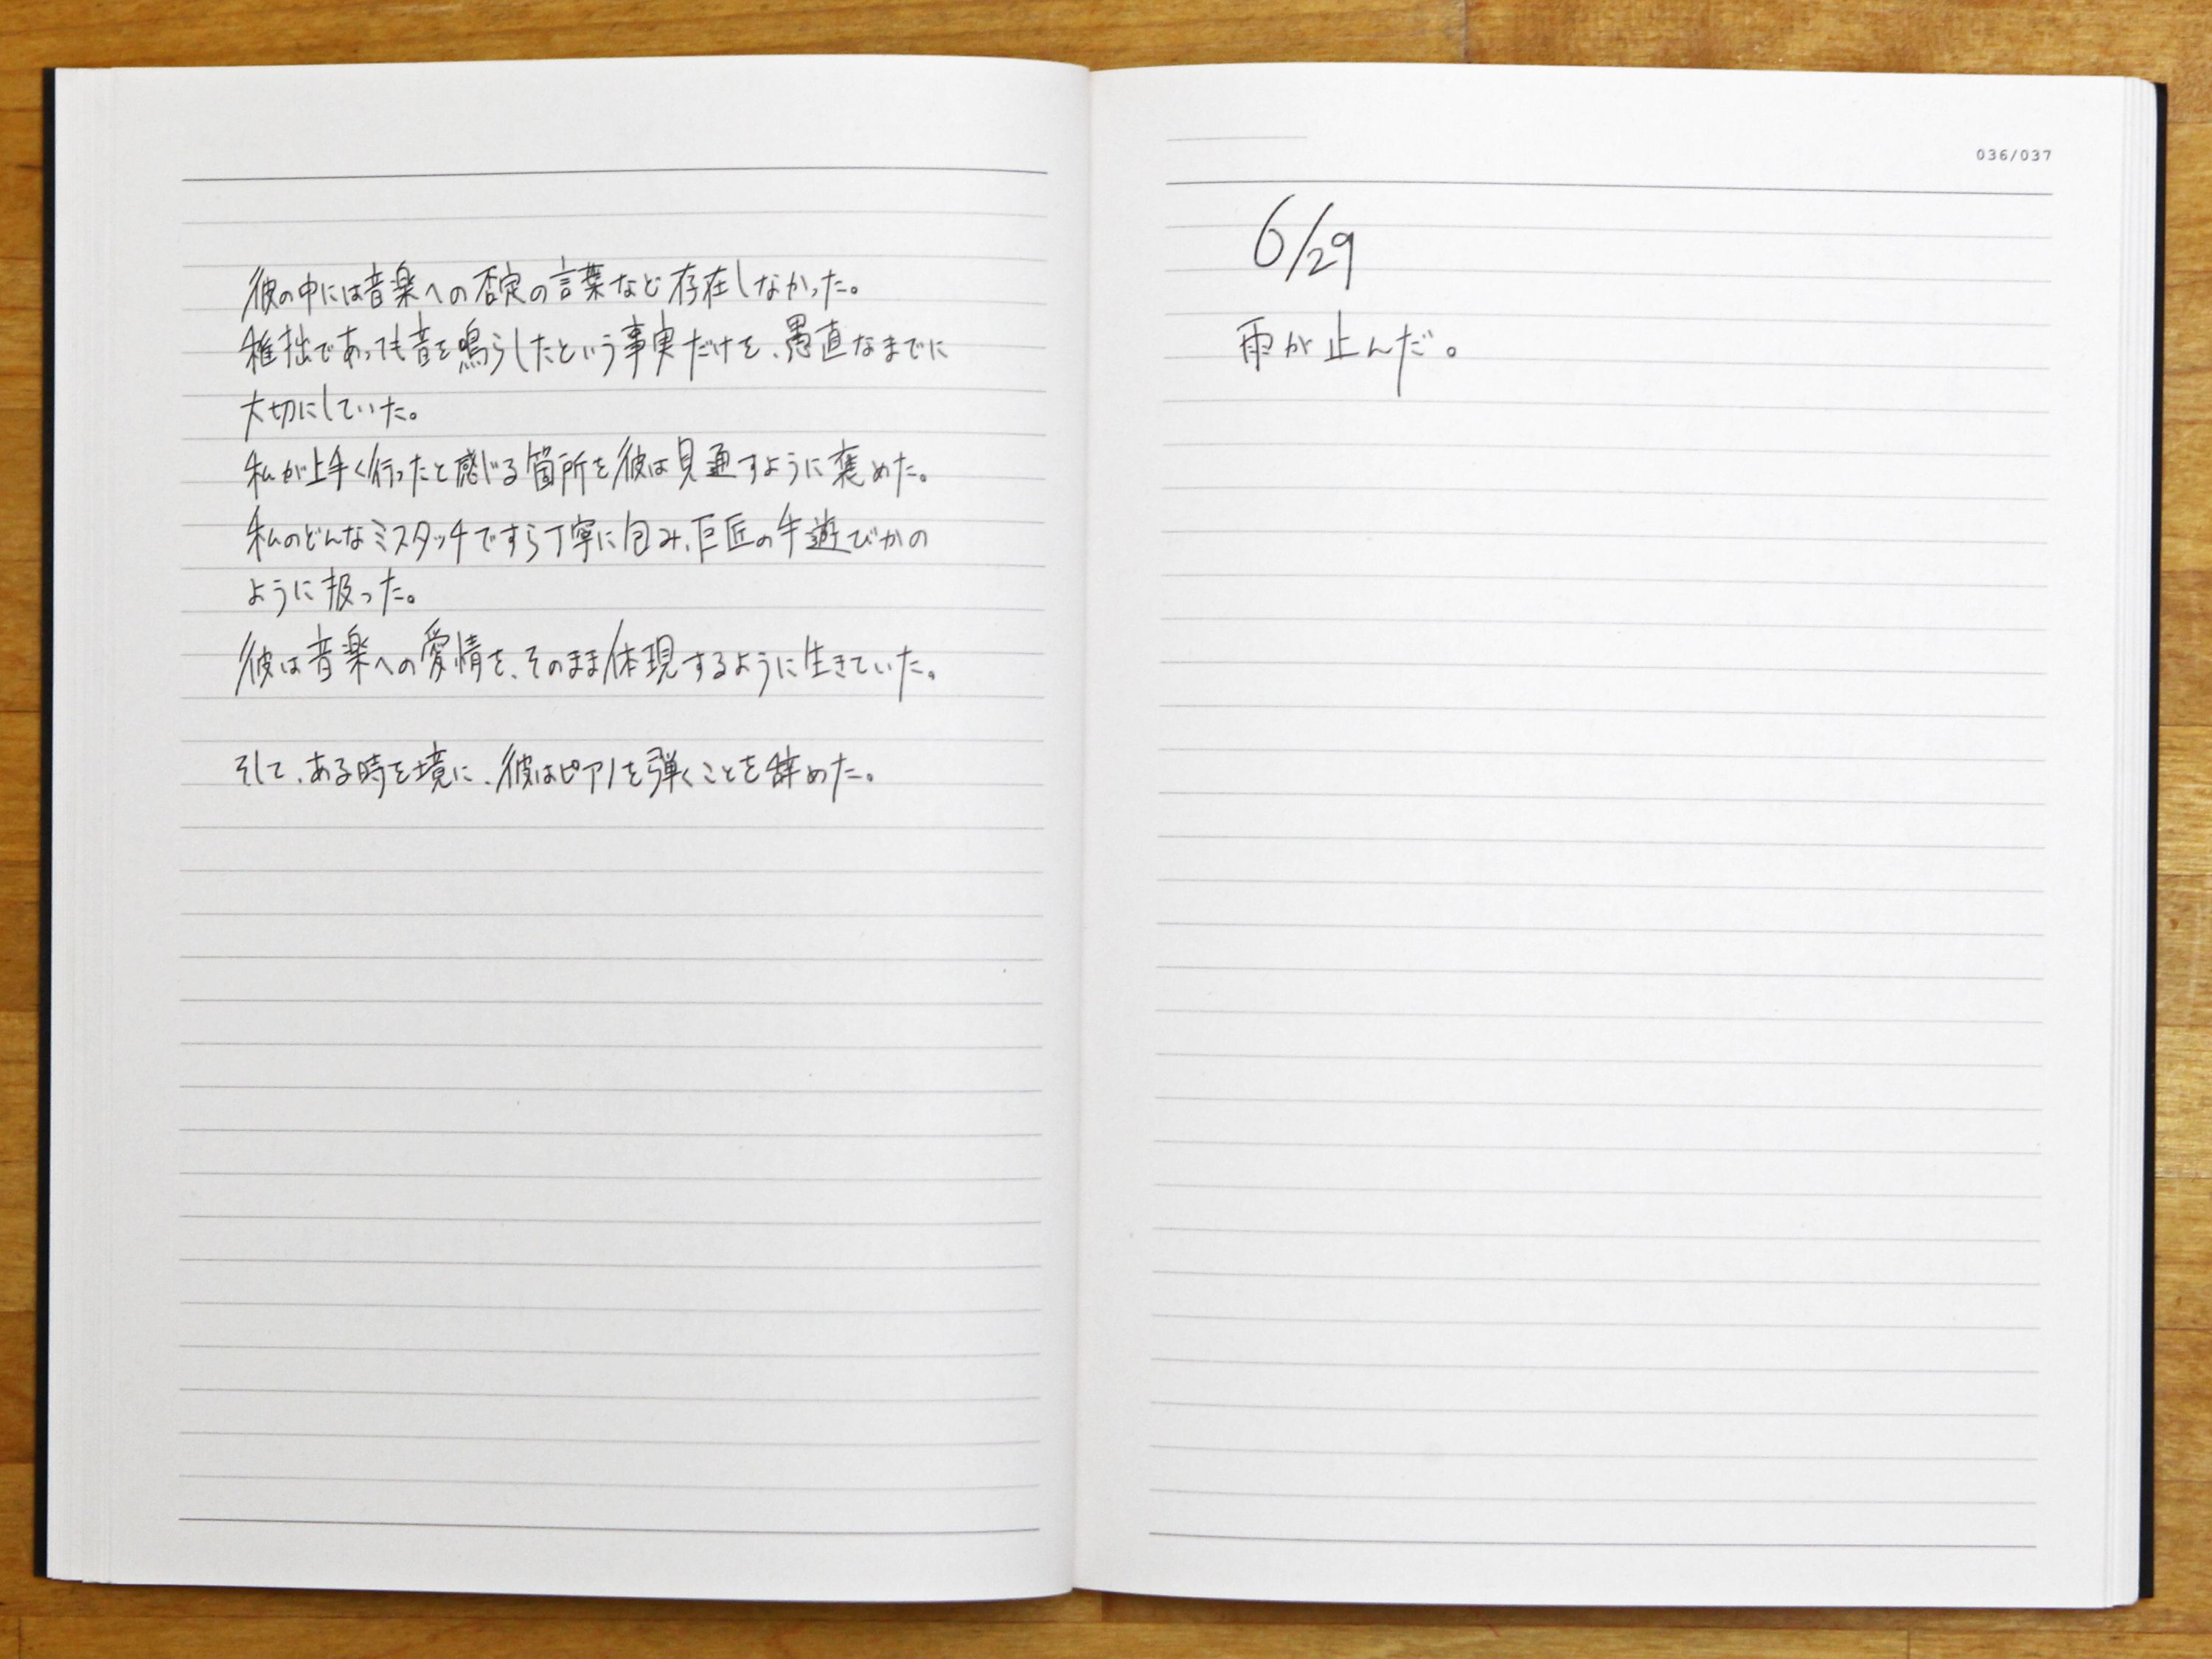 彼の中には音楽への否定の言葉など存在しなかった。
稚拙であっても音を鳴らしたという事実だけを、愚直なまでに
大切にしていた。
私が上手く行ったと感じる箇所を彼は見通すように褒めた。
私のどんなミスタッチですら丁寧に包み、巨匠の手遊びかの
ように扱った。
彼は音楽への愛情を、そのまま体現するように生きていた。
そして、ある時を境に、彼はピアノを弾くことを辞めた。
036/037
6/29
雨が止んだ。